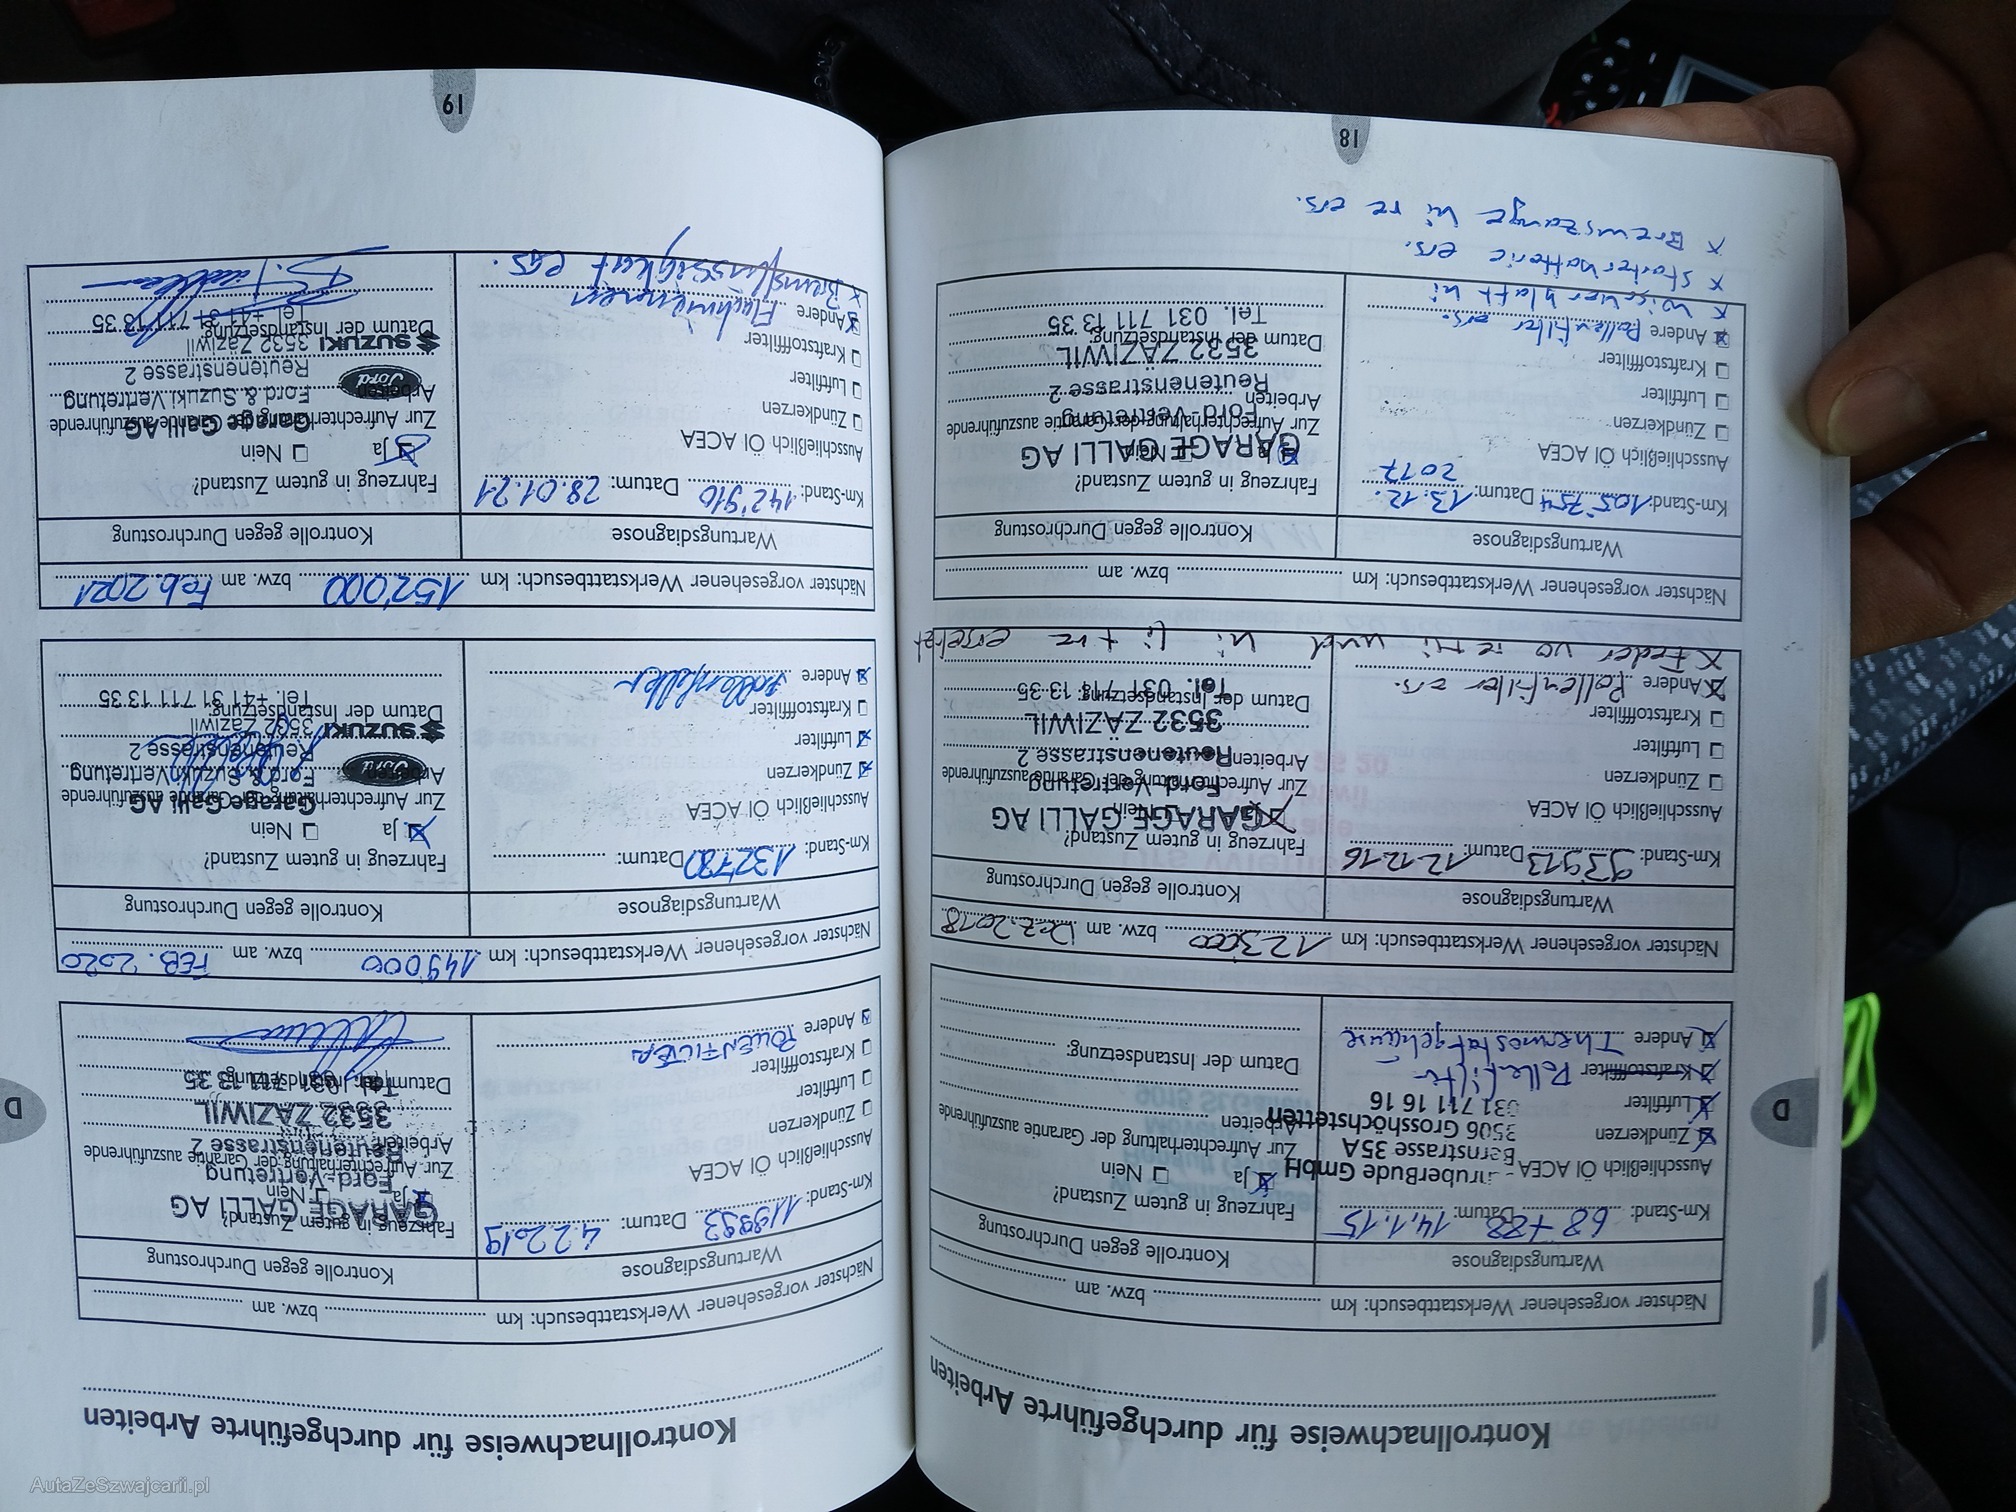 Kontrollnachweise für durchgeführte Arbeiten
Nächster vorgesehener Werkstattbesuch: km bzw. am
Wartungsdiagnose
Kontrolle gegen Durchrostung
Km-Stand: Datum: 14.1.15
Ausschließlich Öl ACEA
Zündkerzen
Luftfilter
Kraftstofffilter
Andere Thermostatgehäuse
GmbH
Bernstrasse 35A
3506 Grosshöchstetten
031 711 16 16
Fahrzeug in gutem Zustand?
Ja Nein
Zur Aufrechterhaltung der Garantie auszuführende
Arbeiten
Datum der Instandsetzung:
Nächster vorgesehener Werkstattbesuch: km 123000 bzw. am Dez. 2018
Wartungsdiagnose
Kontrolle gegen Durchrostung
Km-Stand: 93913 Datum: 12.12.16
Ausschließlich Öl ACEA
Zündkerzen
Luftfilter
Kraftstofffilter
Andere Pollenfilter ers.
x Feder vo re + li und hi li + re ersetzt
Fahrzeug in gutem Zustand?
Ja Nein
Zur Aufrechterhaltung der Garantie auszuführende
Arbeiten
Datum der Instandsetzung:
GARAGE GALLI AG
Ford-Vertretung
Reutenenstrasse 2
3532 ZÄZIWIL
Tel. 031 711 13 35
Nächster vorgesehener Werkstattbesuch: km bzw. am
Wartungsdiagnose
Kontrolle gegen Durchrostung
Km-Stand: 105'754 Datum: 13.12.
2017
Ausschließlich Öl ACEA
Zündkerzen
Luftfilter
Kraftstofffilter
Andere Pollenfilter ers.
x Wischerblatt hi
x Starterbatterie ers.
x Bremszange hi re ers.
Fahrzeug in gutem Zustand?
Ja Nein
Zur Aufrechterhaltung der Garantie auszuführende
Arbeiten
Datum der Instandsetzung:
GARAGE GALLI AG
Ford-Vertretung
Reutenenstrasse 2
3532 ZÄZIWIL
Tel. 031 711 13 35
D
18
Kontrollnachweise für durchgeführte Arbeiten
Nächster vorgesehener Werkstattbesuch: km bzw. am
Wartungsdiagnose
Kontrolle gegen Durchrostung
Km-Stand: Datum: 4.2.2019
Ausschließlich Öl ACEA
Zündkerzen
Luftfilter
Kraftstofffilter
Andere POLLENFILTER
Fahrzeug in gutem Zustand?
Ja Nein
Zur Aufrechterhaltung der Garantie auszuführende
Arbeiten
Datum der Instandsetzung:
GARAGE GALLI AG
Ford-Vertretung
Reutenenstrasse 2
3532 ZÄZIWIL
Tel. 031 711 13 35
Nächster vorgesehener Werkstattbesuch: km 149000 bzw. am FEB. 2020
Wartungsdiagnose
Kontrolle gegen Durchrostung
Km-Stand: Datum:
Ausschließlich Öl ACEA
Zündkerzen
Luftfilter
Kraftstofffilter
Andere Pollenfilter
Fahrzeug in gutem Zustand?
Ja Nein
Zur Aufrechterhaltung der Garantie auszuführende
Arbeiten
Datum der Instandsetzung:
Garage Galli AG
Ford & Suzuki Vertretung
Reutenenstrasse 2
3532 Zäziwil
Tel. +41 31 711 13 35
Ford
SUZUKI
Nächster vorgesehener Werkstattbesuch: km 152'000 bzw. am Feb. 2021
Wartungsdiagnose
Kontrolle gegen Durchrostung
Km-Stand: 142'910 Datum: 28.01.21
Ausschließlich Öl ACEA
Zündkerzen
Luftfilter
Kraftstofffilter
Andere Flachriemen
x Bremsflüssigkeit ers.
Fahrzeug in gutem Zustand?
Ja Nein
Zur Aufrechterhaltung der Garantie auszuführende
Arbeiten
Datum der Instandsetzung:
Garage Galli AG
Ford & Suzuki Vertretung
Reutenenstrasse 2
3532 Zäziwil
Tel. +41 31 711 13 35
Ford
SUZUKI
D
19
AutaZeSzwajcarii.pl